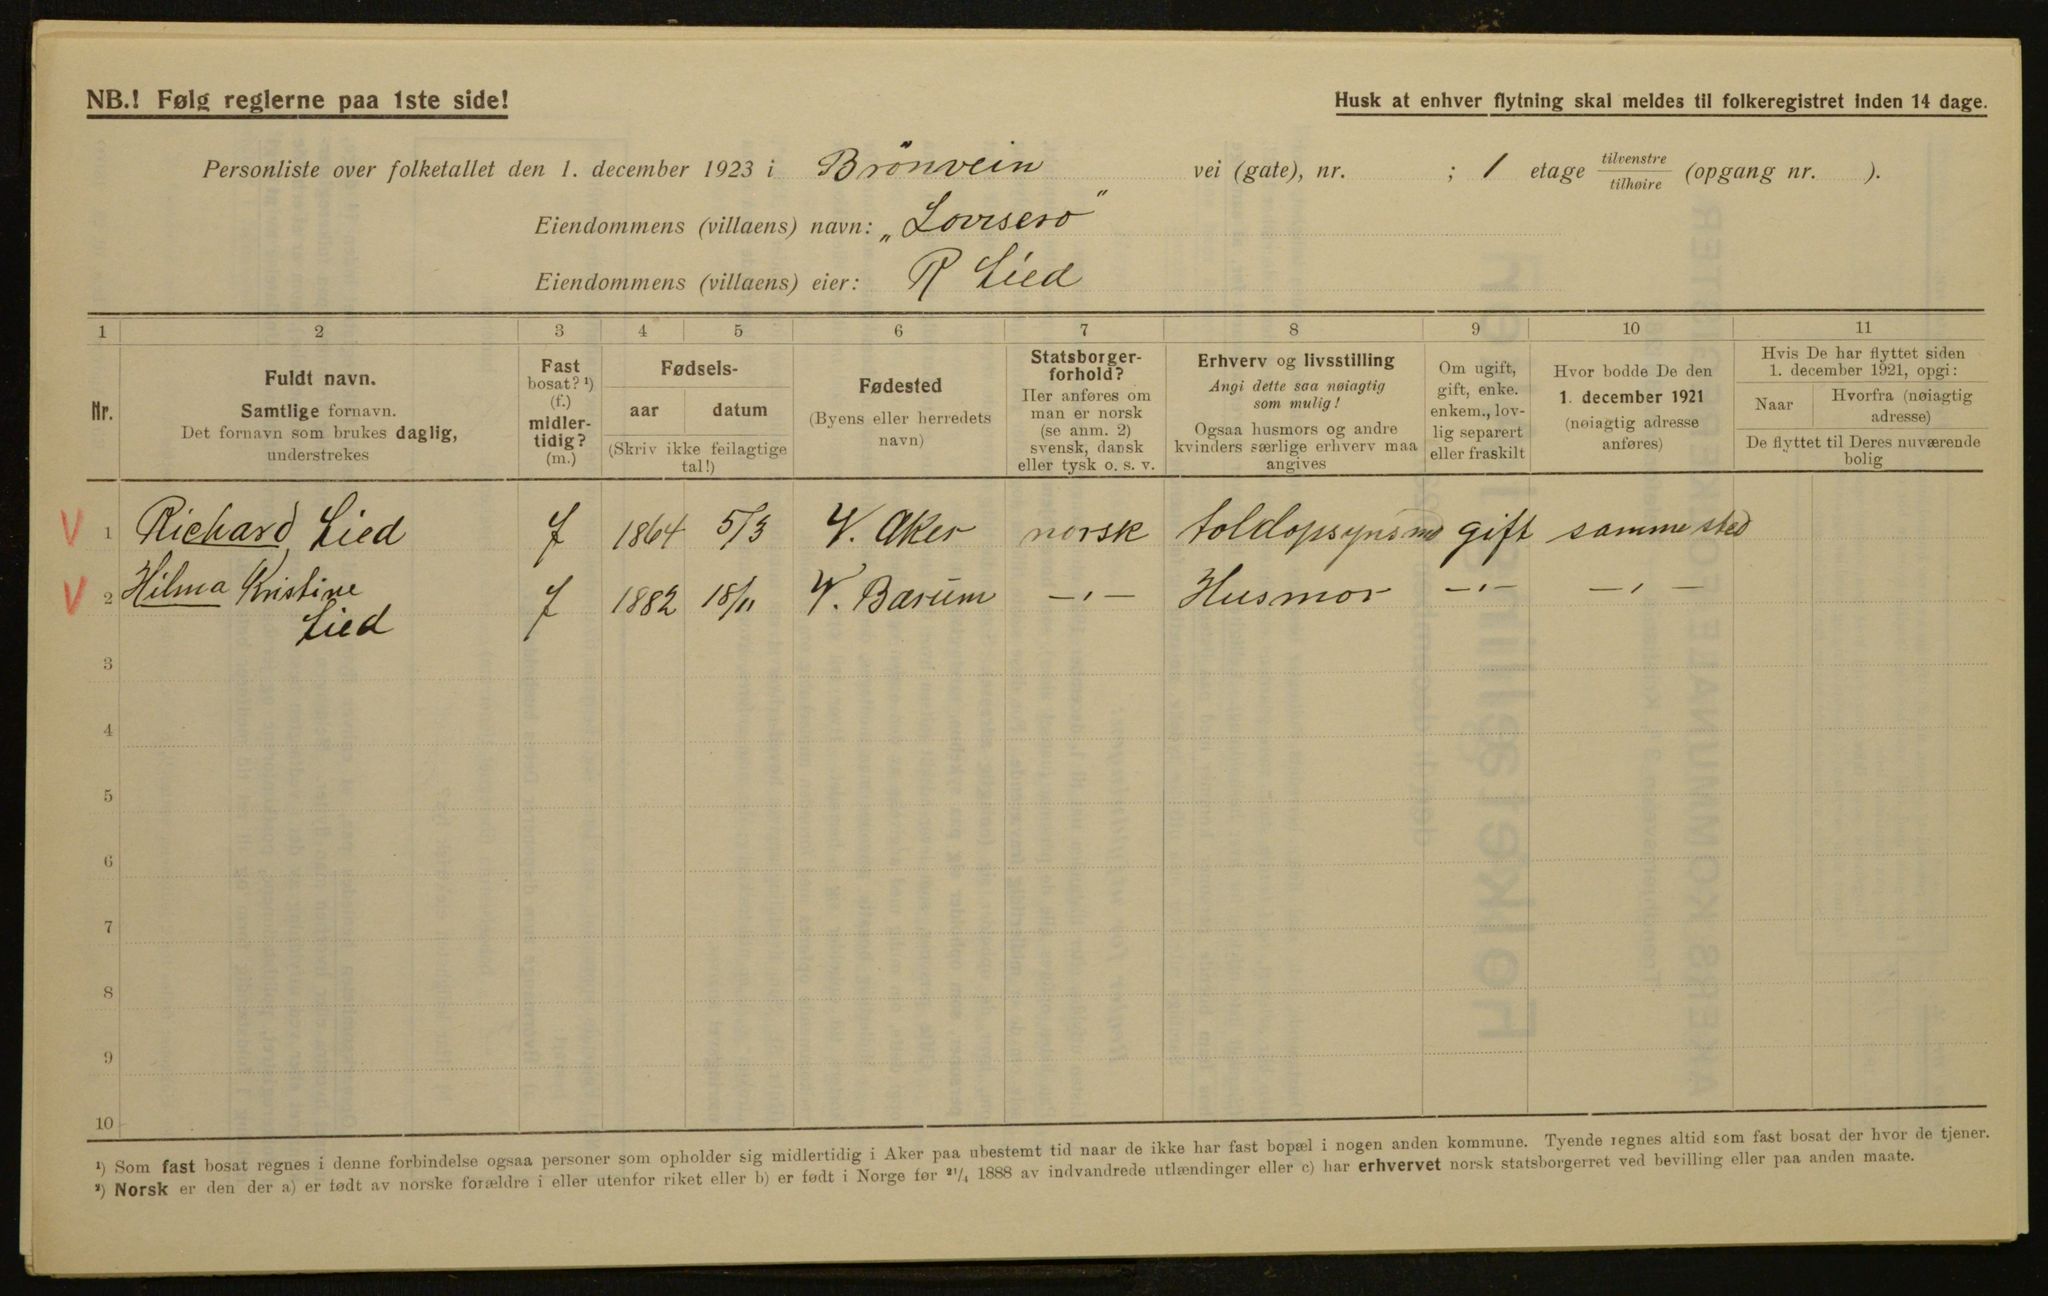 NB.! Følg reglerne paa 1ste side!
Husk at enhver flytning skal meldes til folkeregistret inden 14 dage.
Personliste over folketallet den 1. december 1923 i Brönvein vei (gate), nr. ; 1 etage tilvenstre/tilhøire (opgang nr. ).
Eiendommens (villaens) navn: „Lovisero"
Eiendommens (villaens) eier: R Lied
1 2 3 4 5 6 7 8 9 10 11
Nr.
Fuldt navn.
Samtlige fornavn.
Det fornavn som brukes daglig,
understrekes
Fast
bosat? ¹)
(f.)
midler-
tidig?
(m.)
Fødsels-
aar datum
(Skriv ikke feilagtige
tal!)
Fødested
(Byens eller herredets
navn)
Statsborger-
forhold?
Her anføres om
man er norsk
(se anm. 2)
svensk, dansk
eller tysk o. s. v.
Erhverv og livsstilling
Angi dette saa nøiagtig
som mulig!
Ogsaa husmors og andre
kvinders særlige erhverv maa
angives
Om ugift,
gift, enke.
enkem., lov-
lig separert
eller fraskilt
Hvor bodde De den
1. december 1921
(nøiagtig adresse
anføres)
Hvis De har flyttet siden
1. december 1921, opgi:
Naar Hvorfra (nøiagtig
adresse)
De flyttet til Deres nuværende
bolig
V 1 Richard Lied f 1864 5/3 V. Aker norsk toldopsynsm gift samme sted
V 2 Hilma Kristine
Lied f 1882 18/11 V. Bærum —„— Husmor —„— —„—
3
4
5
6
7
8
9
10
¹) Som fast bosat regnes i denne forbindelse ogsaa personer som opholder sig midlertidig i Aker paa ubestemt tid naar de ikke har fast bopæl i nogen anden kommune. Tyende regnes altid som fast bosat der hvor de tjener.
²) Norsk er den der a) er født av norske forældre i eller utenfor riket eller b) er født i Norge før ²¹/₄ 1888 av indvandrede utlændinger eller c) har erhvervet norsk statsborgerret ved bevilling eller paa anden maate.